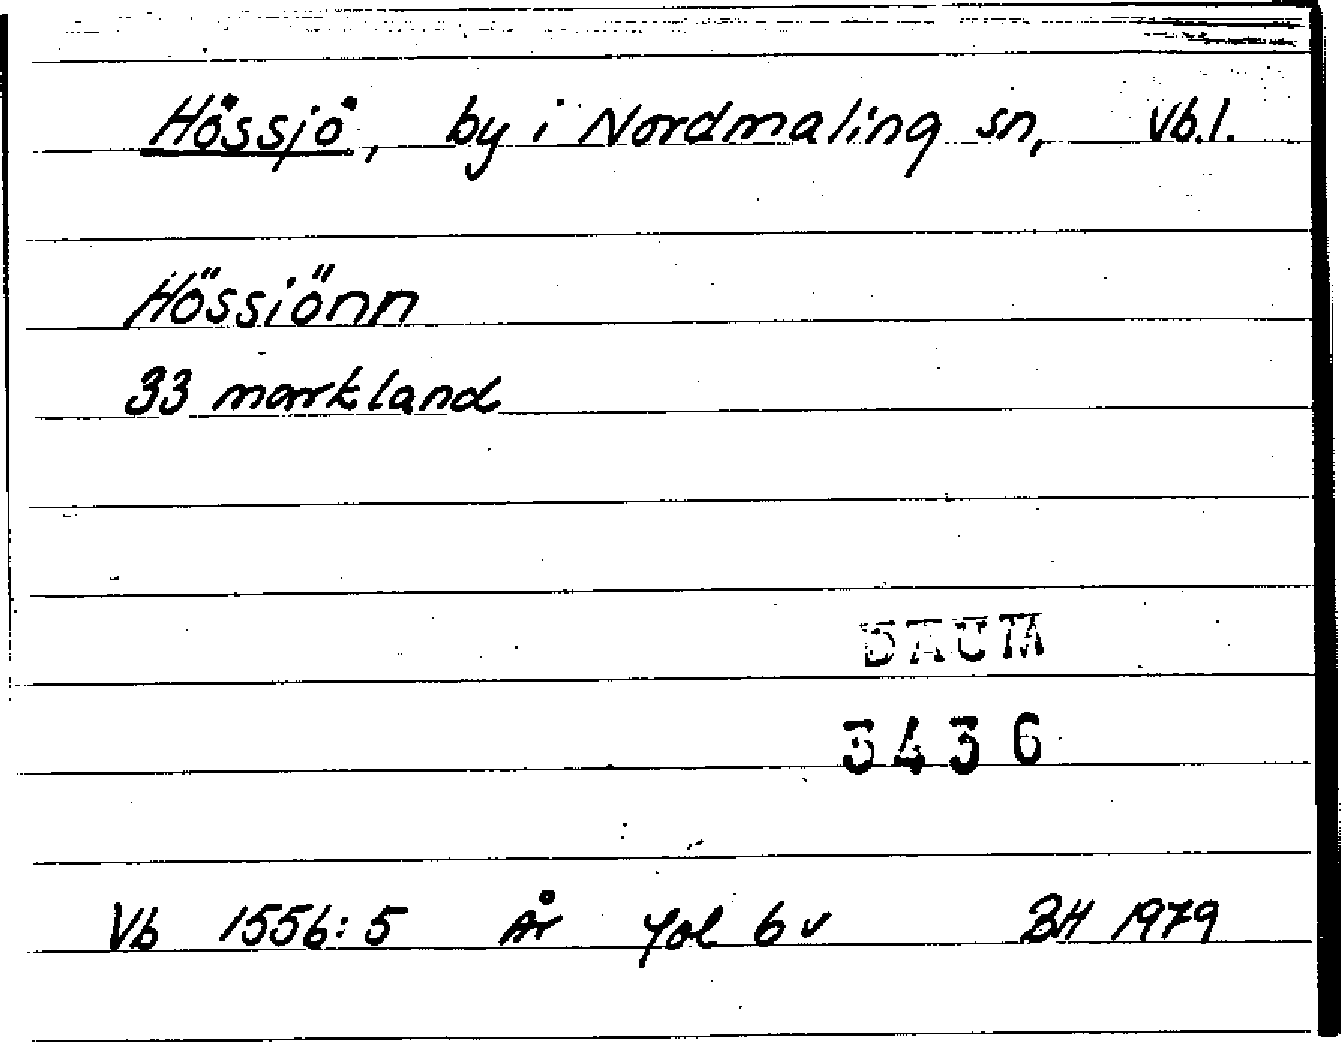 Hössjö, by i Nordmaling sn, Vb.l.
Hössiönn
33 markland
DAUM
3436
Vb 1556:5 År fol 6v BH 1979